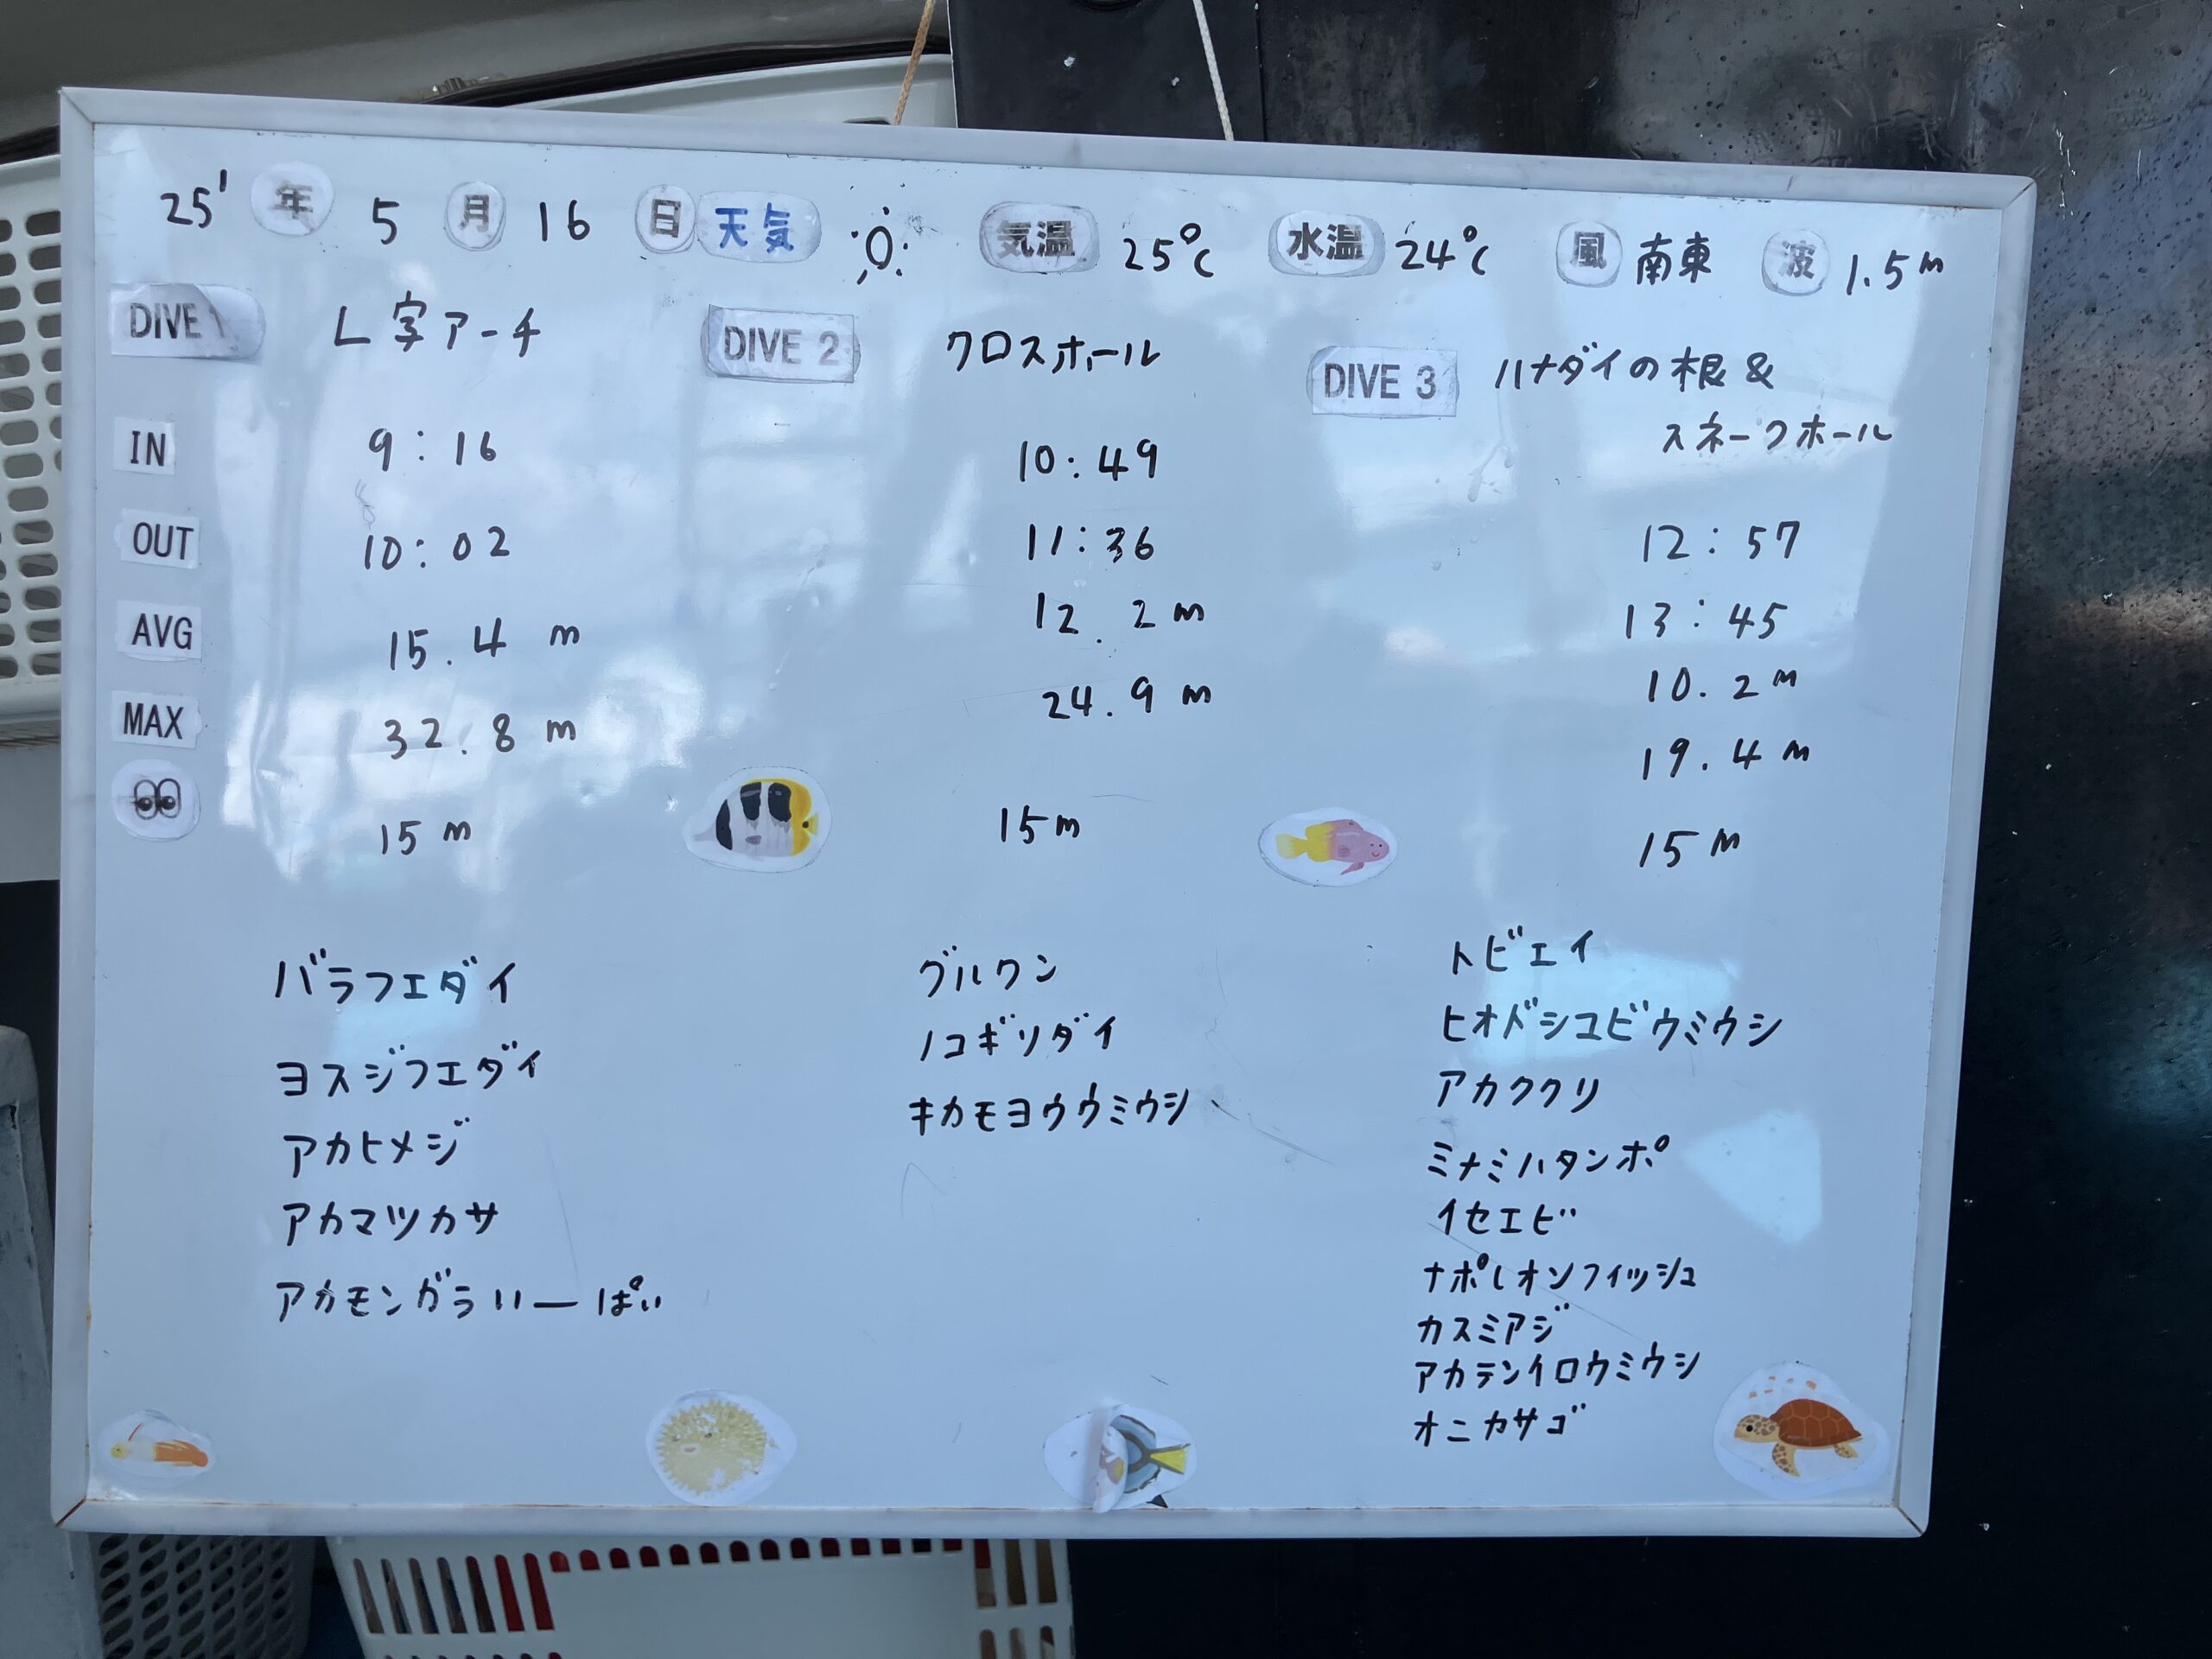 25' 年 5 月 16 日 天気 気温 25℃ 水温 24℃ 風 南東 波 1.5m
DIVE 1 L字アーチ
DIVE 2 クロスホール
DIVE 3 ハナダイの根&
スネークホール
IN 9:16 10:49 12:57
OUT 10:02 11:36 13:45
AVG 15.4m 12.2m 10.2m
MAX 32.8m 24.9m 19.4m
15m 15m 15m
バラフエダイ
ヨスジフエダイ
アカヒメジ
アカマツカサ
アカモンガラいーぱい
グルクン
ノコギリダイ
キカモヨウウミウシ
トビエイ
ヒオドシユビウミウシ
アカククリ
ミナミハタンポ
イセエビ
ナポレオンフィッシュ
カスミアジ
アカテンイロウミウシ
オニカサゴ